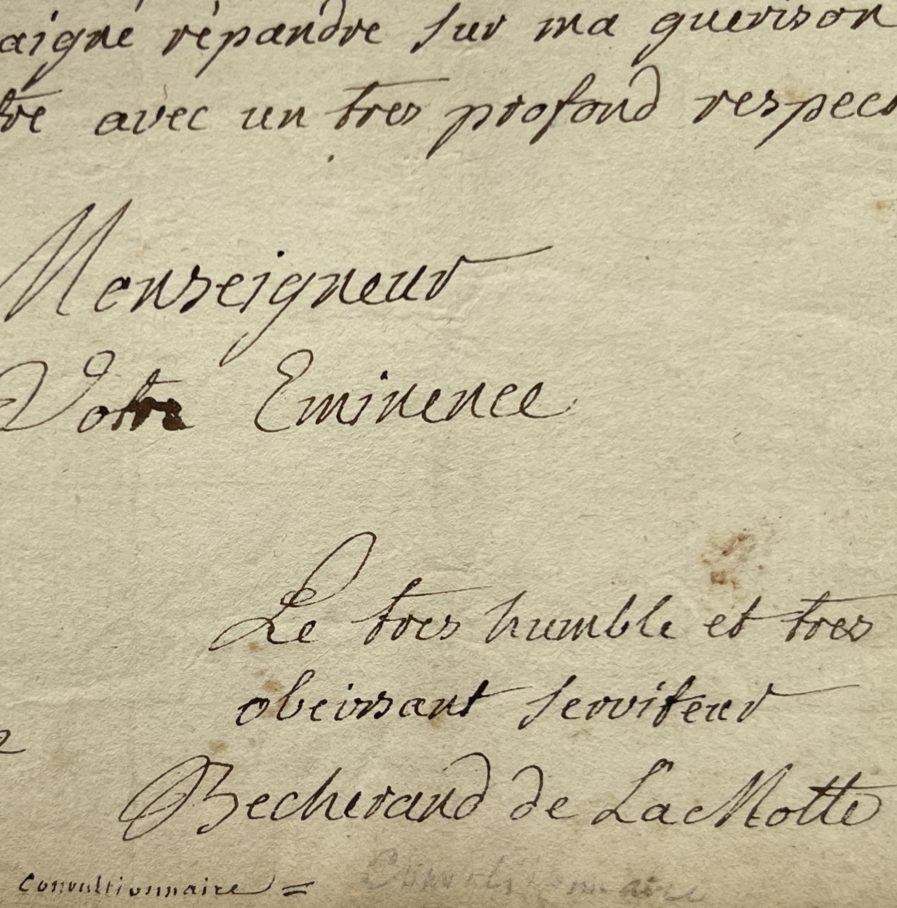 aigné répandre sur ma guerison
tre avec un tres profond respect
Monseigneur
Votre Eminence
Le tres humble et tres
obeissant serviteur
Becherand de LaMotte
Convultionnaire =
Convultionnaire